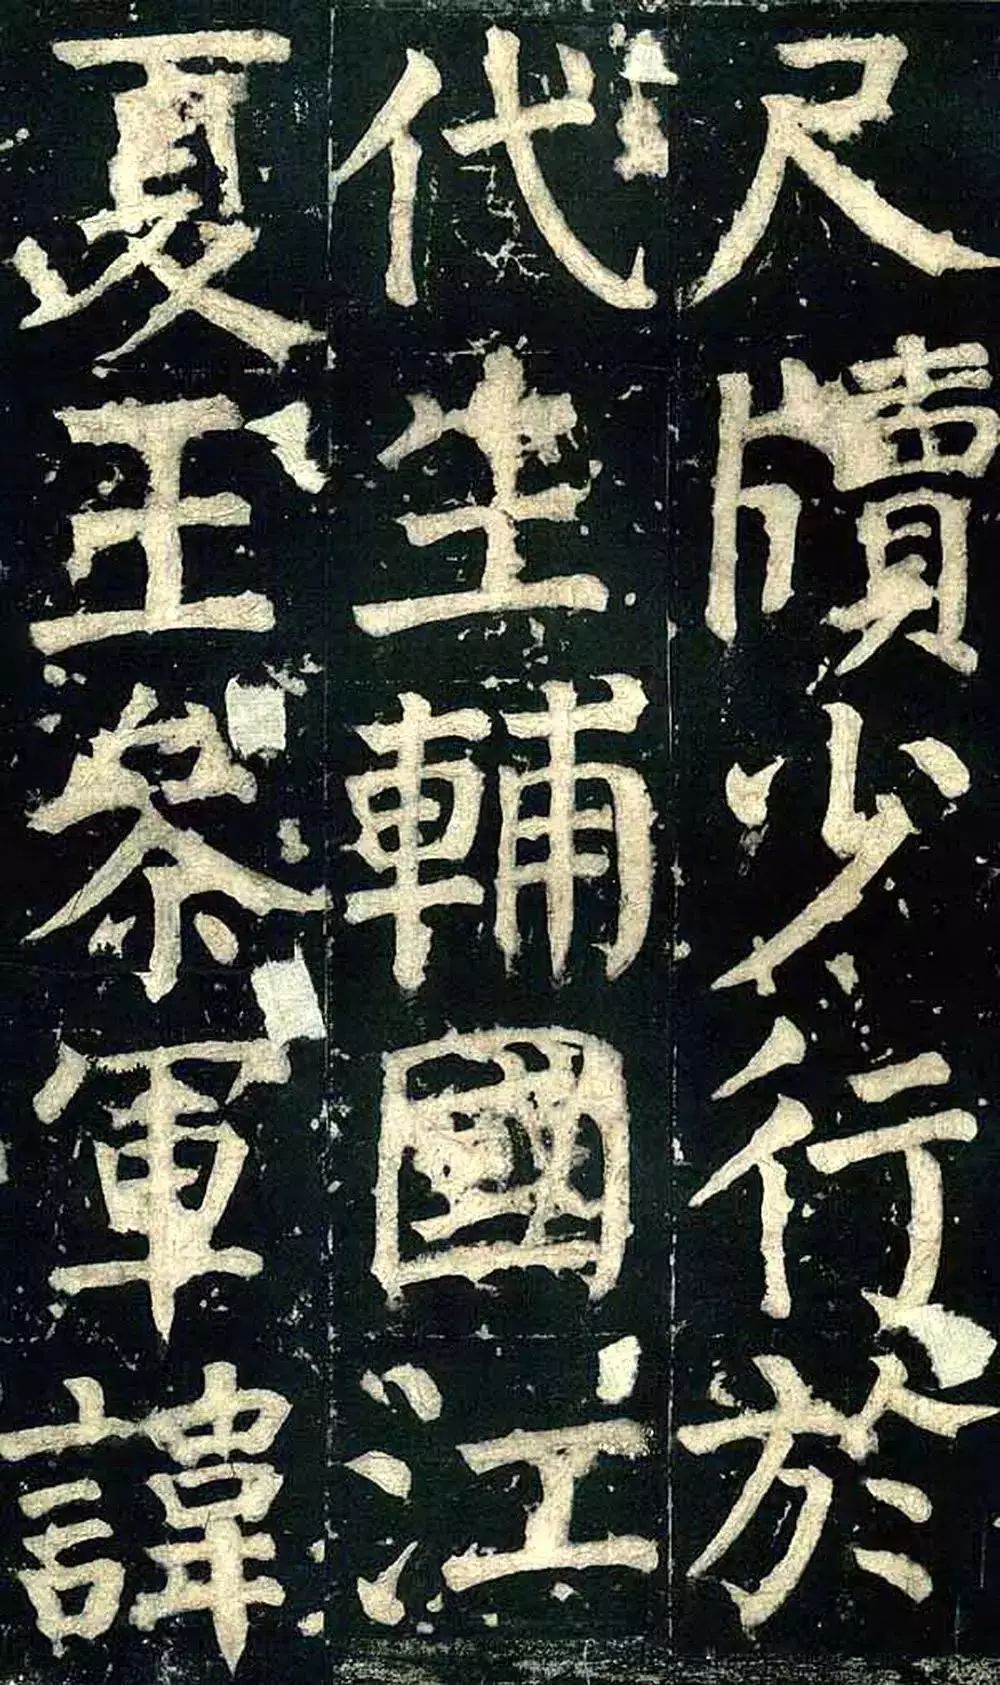 尺牘少行於
代生輔國江
夏王參軍諱